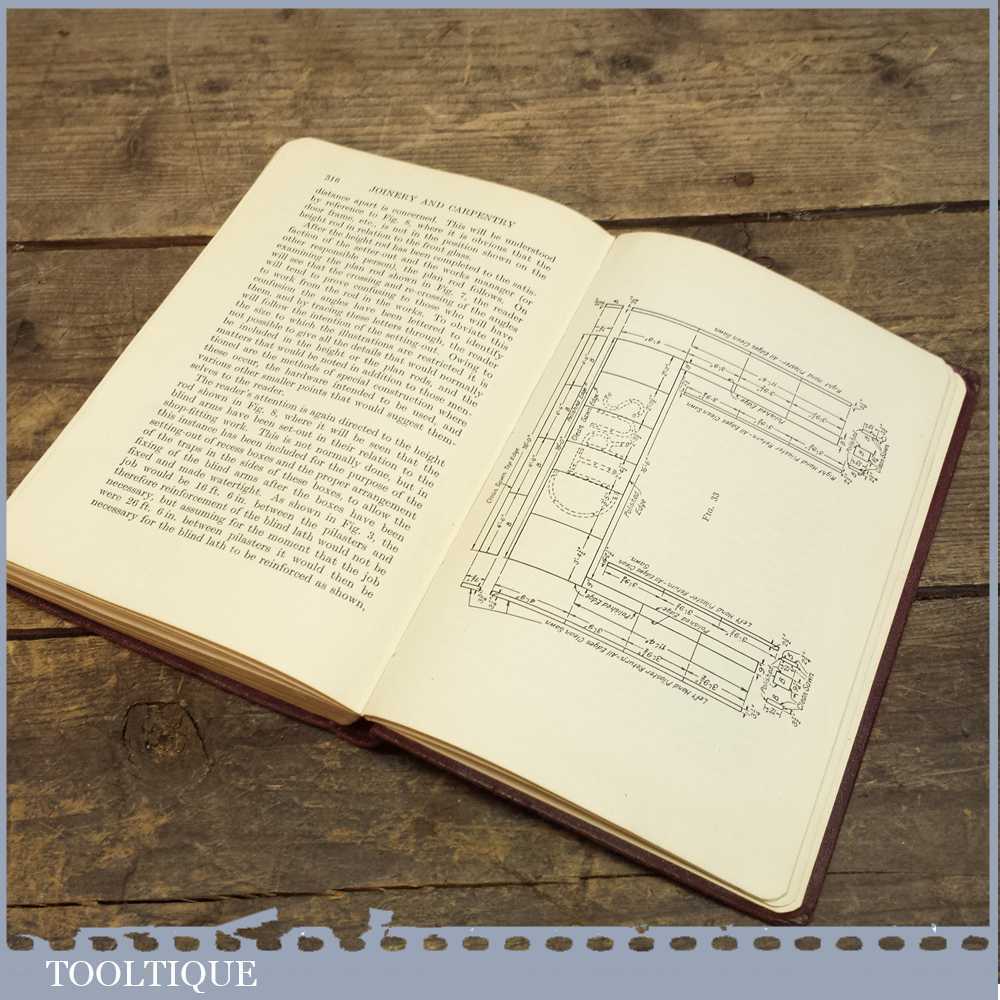 316
JOINERY AND CARPENTRY
distance apart is concerned. This will be understood
by reference to Fig. 8, where it is obvious that the
door frame, etc., is not in the position shown on the
height rod in relation to the front glass.
After the height rod has been completed to the satis-
faction of the setter-out and the works manager (or
other responsible person), the plan rod follows. On
examining the plan rod shown in Fig. 7, the reader
will see that the crossing and re-crossing of the angles
will tend to prove confusing to those who will have
to work from the rod in the works. To obviate this
confusion the angles have been lettered to identify
them, and by tracing these letters through, the reader
will follow the intention of the setting-out. Owing to
the size to which the illustrations are restricted it is
not possible to give all the details that would normally
be involved in the height or the plan rods, and the
matters that would be noted in addition to those men-
tioned are the methods of special construction where
these occur, the hardware intended to be used, and
various other smaller points that would suggest them-
selves to the reader.
The reader's attention is again directed to the height
rod shown in Fig. 8, where it will be seen that the
blind arms have been set-out in their relation to the
shop-fitting work. This is not normally done, but in
this instance has been included for the purpose of the
setting-out of recess boxes and the proper arrangement
of the traps in the sides of these boxes, to allow the
fixing of the blind arms after the boxes have been
fixed and made watertight. As shown in Fig. 3, the
job would be 16 ft. 6 in. between the pilasters and
therefore reinforcement of the blind lath would not be
necessary, but assuming for the moment that the job
were 26 ft. 6 in. between pilasters it would then be
necessary for the blind lath to be reinforced as shown,
Right Hand Pilaster-All Edges Clean Sawn
Polished Edge
Right Hand Pilaster Return-All Edges Clean Sawn
Polished
Clean Sawn
Clean Sawn Top Edge
Polished Edge
FIG. 33
Left Hand Pilaster Return-All Edges Clean Sawn
Polished Edge
Polished Edge
Left Hand Pilaster Return-All Edges Clean Sawn
Polished
Clean Sawn
TOOLTIQUE